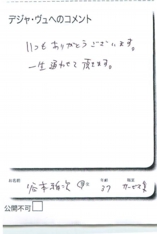 デジャ・ヴュへのコメント
いつもありがとうございます。
一生通わせて頂きます。
お名前 年齢 職業
27 サービス業
公開不可